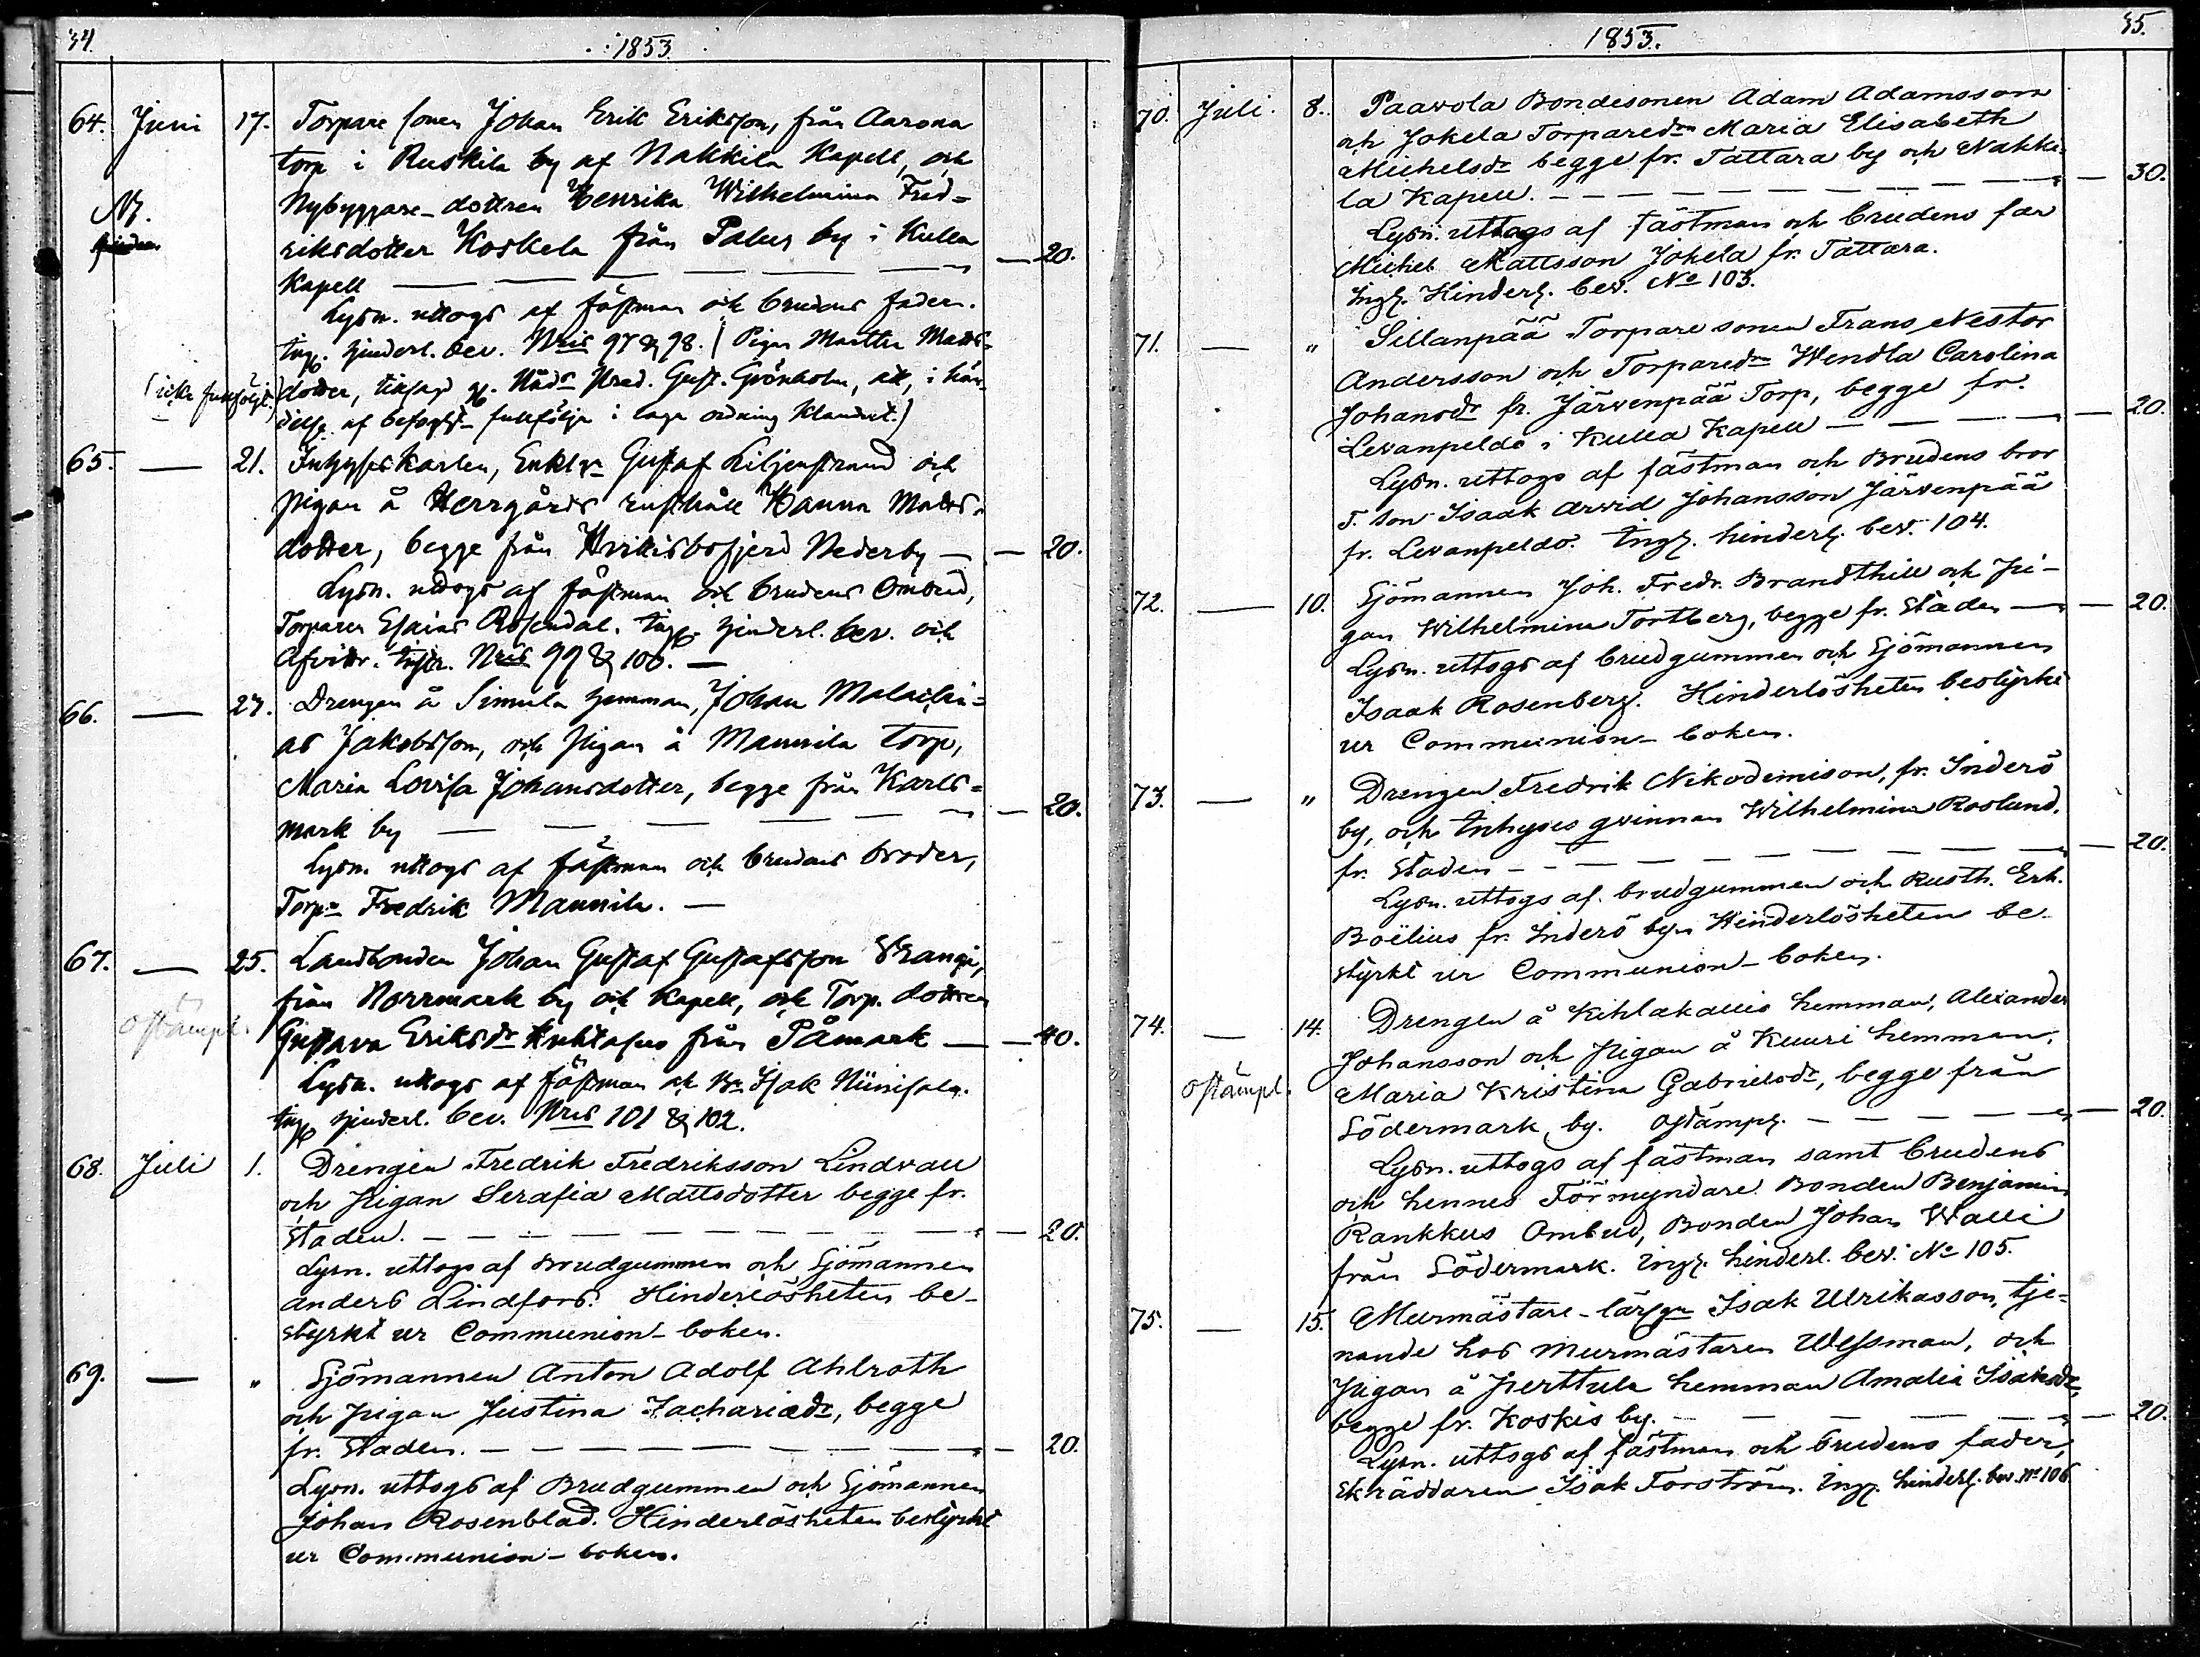 34.
1853.
64. Juni 17. Torpare sonen Johan Erik Eriksson, från Aarona
torp i Ruskila by af Nakkila Kapell, och
Nybyggare-dottren Henrika Wilhelmina Fred=
riksdotter Koskela från Palus by i Kulla
Kapell — — — — — 20.
Lysn. uttogs af fästman och brudens fader.
Ing. hinderl. bev. Nris 97 & 98. (Pigan Martha Matts=
dotter, Gust. Grönholm, att, i hän=
delse af befogh. fullfölja i laga ordning klandret.)
(icke fullföljt.)
65. — 21. Inhyses Karlen, Enkl. Gustaf Liljenstrand och
pigan å Herrgårds rusthåll Hanna Matts=
dotter, begge från Hvittisbofjerd Nederby — — 20.
Lysn. uttogs af fästman och brudens Ombud,
Torparen Esaias Rosendal. Ing. hinderl. bev. och
Afvittr. Nris 99 & 100. —
66. — 27. Drengen å Simula hemman, Johan Malachi=
as Jakobsson, och Pigan å Mannila torp,
Maria Lovisa Johansdotter, begge från Karls=
mark by — — — — — 20.
Lysn. uttogs af fästman och brudens broder,
Torp. Fredrik Mannila. —
67. — 25. Landbonden Johan Gustaf Gustafsson
från Norrmark by och Kapell, och Torp. dottren
ostämpl. Gustava Eriksdr från Påmark — — 40.
Lysn. uttogs af fästman och Isak Niinisalo.
Ing. hinderl. bev. Nris 101 & 102.
68. Juli 1. Drengen Fredrik Fredriksson Lindvall
och Pigan Serafia Mattsdotter begge fr.
Staden. — — — — — 20.
Lysn. uttogs af Brudgummen och Sjömannen
Anders Lindfors. Hinderlösheten be-
styrkt ur Communion-boken.
69. — " Sjömannen Anton Adolf Ahlroth
och Pigan Justina Zachariædr, begge
fr. Staden. — — — — — 20.
Lysn. uttogs af Brudgummen och Sjömannen
Johan Rosenblad. Hinderlösheten bestyrkt
ur Communion-boken.
35.
1853.
70. Juli. 8. Paavola Bondesonen Adam Adamsson
och Jokela Torparedrn Maria Elisabeth
Michelsdr begge fr. Tattara by och Nakki=
la Kapell. — — — — — 30.
Lysn. uttogs af fästman och brudens far
Michel Mattsson Jokela fr. Tattara.
Ing. Hinderl. bev. No 103.
71. — " Sillanpää Torpare sonen Frans Nestor
Andersson och Torparedrn Wendla Carolina
Johansdr fr. Järvenpää Torp, begge fr.
Levanpeldo i Kulla Kapell — — — 20.
Lysn. uttogs af fästman och Brudens bror
T. son Isaak Arvid Johansson Järvenpää
fr. Levanpeldo. Ing. hinderl. bev. 104.
72. — 10. Sjömannen Joh. Fredr. Brandthill och Pi-
gan Wilhelmina Tortberg, begge fr. Staden — — 20.
Lysn. uttogs af brudgummen och Sjömannen
Isaak Rosenberg. Hinderlösheten bestyrkt
ur Communion-boken.
73. — " Drengen Fredrik Nikodemison, fr. Inderö
by, och Inhyses qvinnan Wilhelmina Roslund,
fr. Staden — — — — — 20.
Lysn. uttogs af brudgummen och Rusth. Erh.
Boëlius fr. Inderö by. Hinderlösheten be-
styrkt ur Communion-boken.
74. — 14. Drengen å Kihlakallio hemman, Alexander
Johansson och Pigan å Kuuri hemman,
ostämpl. Maria Kristina Gabrielsdr, begge från
Södermark by. Ostämpl. — — — — 20.
Lysn. uttogs af fästman samt brudens
och hennes Förmyndare Bonden Benjamin
Rankkus Ombud, Bonden Johan Walli
från Södermark. Ing. hinderl. bev. No 105.
75. — 15. Murmästare-lärgn Isak Ulrikasson, tje-
nande hos Murmästaren Wessman, och
Pigan å Perttula hemman Amalia Isaksdr,
begge fr. Koskis by. — — — — — 20.
Lysn. uttogs af fästman och brudens fader,
Skräddaren Isak Forström. Ing. hinderl. bev. No 106